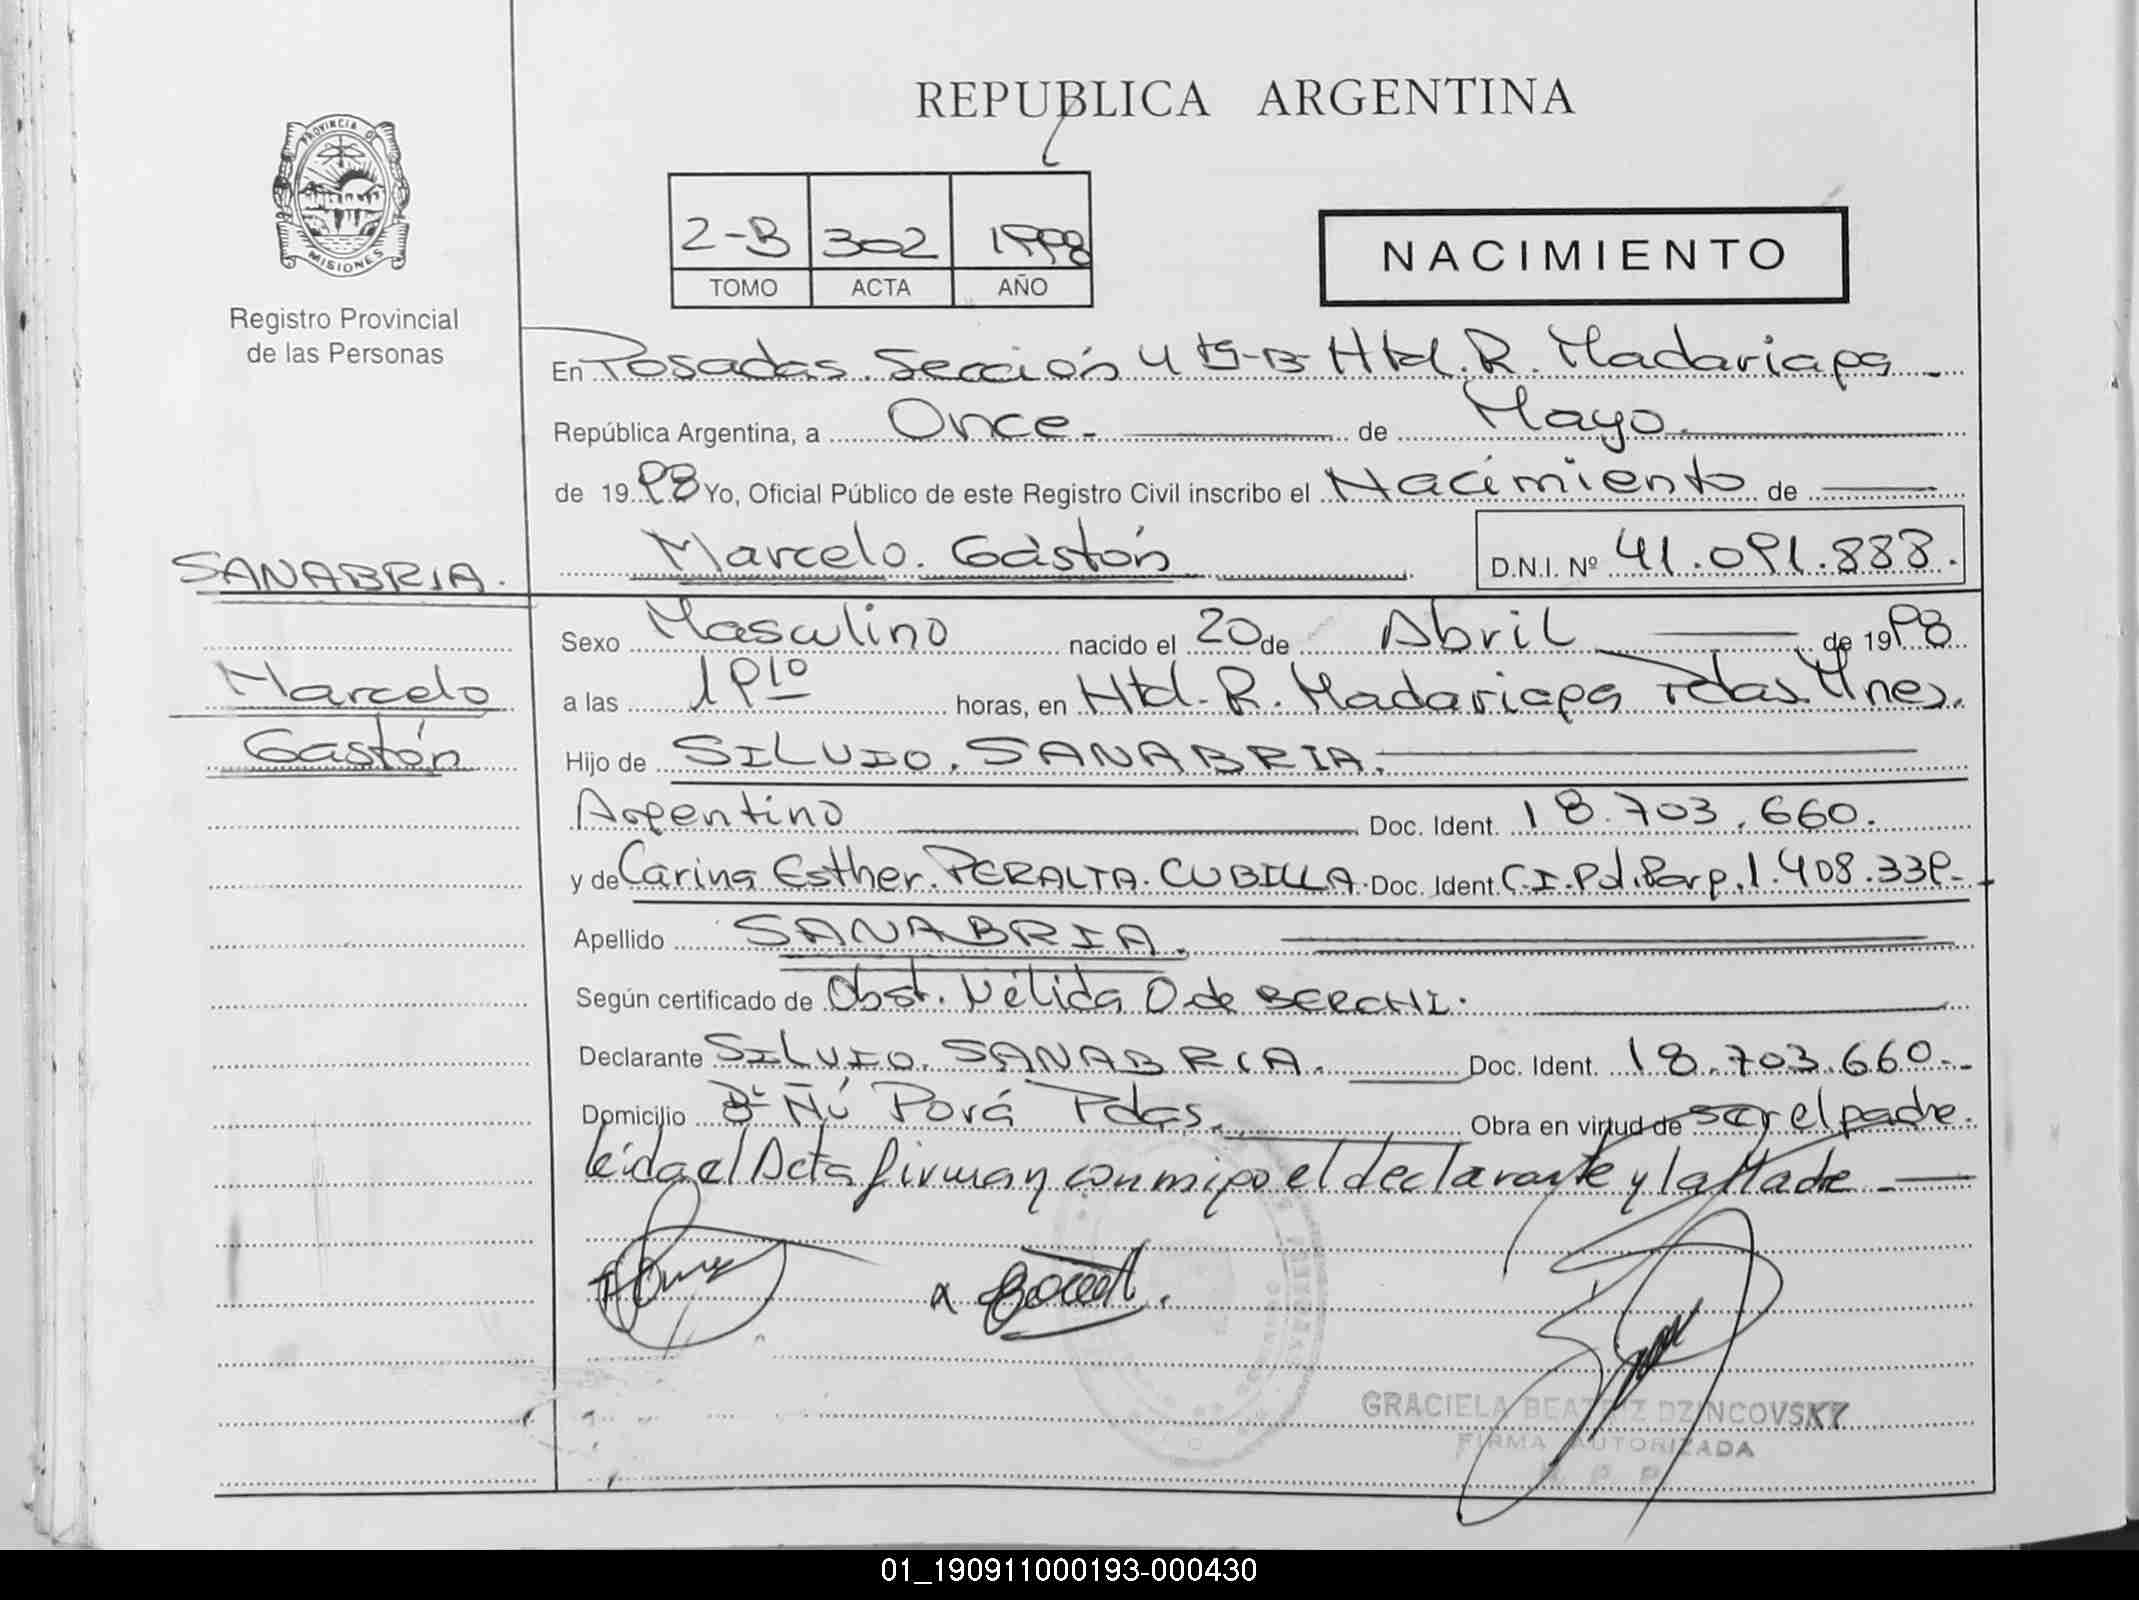 REPUBLICA ARGENTINA
PROVINCIA D
MISIONES
Registro Provincial
de las Personas
2-B 302 1998
TOMO ACTA AÑO
NACIMIENTO
En Posadas. Sección 4 ta-B- Htal. R. Madariaga -
República Argentina, a Once - de Mayo.
de 1998 Yo, Oficial Público de este Registro Civil inscribo el Nacimiento de
Marcelo. Gastón
D.N.I. Nº 41.091.888.
SANABRIA.
Marcelo
Gastón
Sexo Masculino nacido el 20 de Abril de 1998
a las 19 10 horas, en Htal. R. Madariaga Pdas. Mnes.
Hijo de SILVIO. SANABRIA.
Argentino Doc. Ident. 18.703.660.
y de Carina Esther. PERALTA. CUBILLA. Doc. Ident. C.I. Pol. Parg. 1.408.339-
Apellido SANABRIA.
Según certificado de Obst. Nélida O. de BERCHI.
Declarante SILVIO. SANABRIA. Doc. Ident. 18.703.660.-
Domicilio Bº Ñú Porá Pdas. Obra en virtud de ser el padre.
leída el Acta firman conmigo el declarante y la Madre -
GRACIELA BEATRIZ DZINCOVSKY
FIRMA AUTORIZADA
R. P. P.
01_190911000193-000430